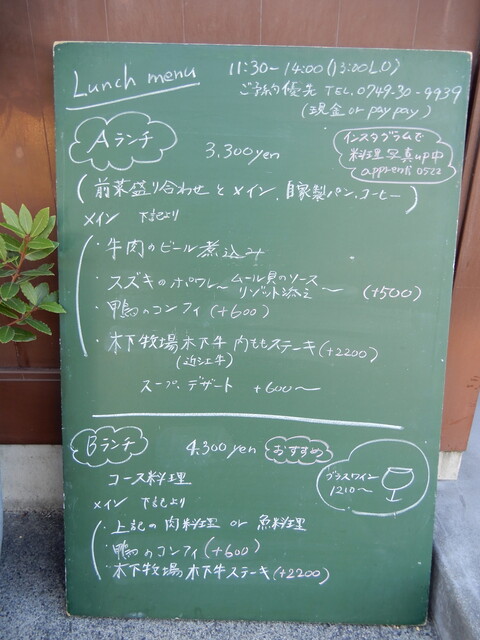 Lunch menu
11:30-14:00(13:00L.O)
ご予約優先 TEL.0749-30-9939
(現金 or paypay)
Aランチ
3,300yen
インスタグラムで
料理写真up中
apprenti0522
(前菜盛り合わせとメイン、自家製パン、コーヒー)
メイン 下記より
・牛肉のビール煮込み
・スズキのポワレ~ムール貝のソース
リゾット添え~ (+500)
・鴨のコンフィ(+600)
・木下牧場木下牛内ももステーキ(+2200)
(近江牛)
スープ、デザート +600~
Bランチ 4,300yen おすすめ
コース料理
グラスワイン
1210~
メイン 下記より
・上記の肉料理 or 魚料理
・鴨のコンフィ(+600)
・木下牧場の木下牛ステーキ(+2200)